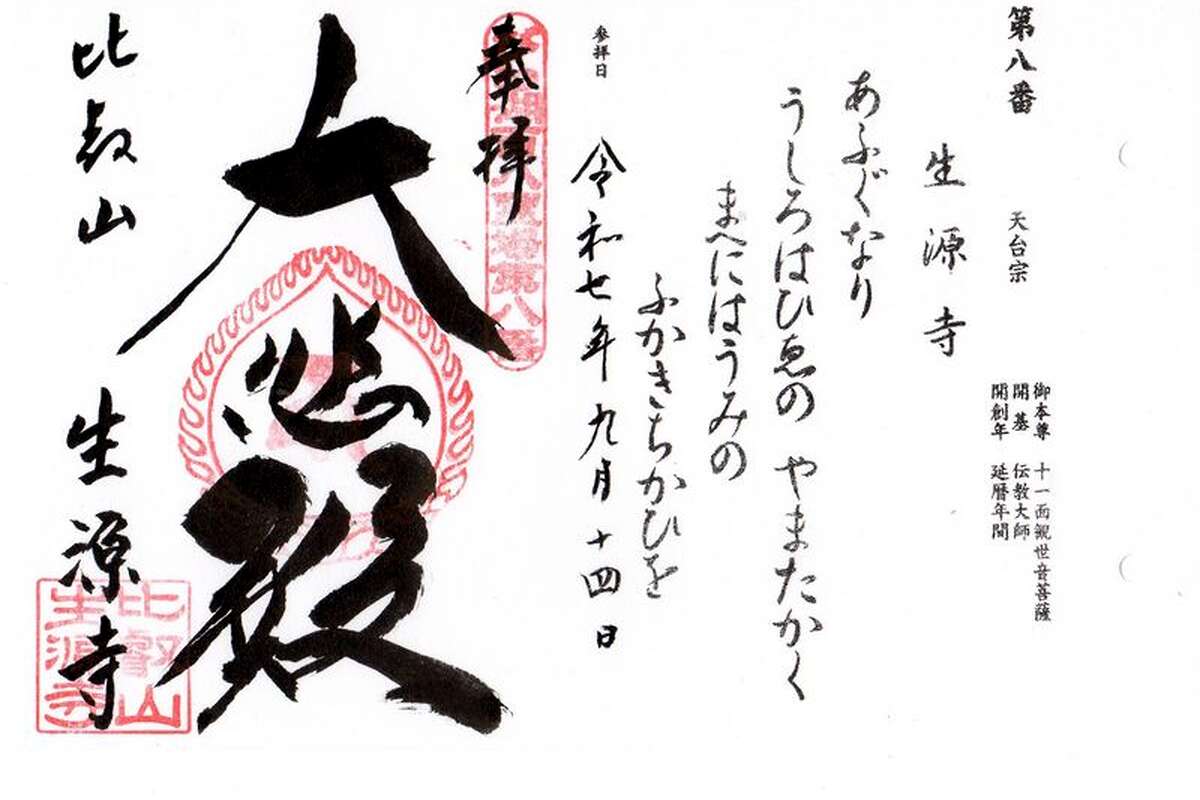 第八番
生源寺
天台宗
御本尊 十一面観世音菩薩
開基 伝教大師
開創年 延暦年間
あふぐなり
うしろはひゑの やまたかく
まへにはうみの
ふかきちかひを
参拝日 令和七年九月十四日
奉拝
大悲殿
比叡山 生源寺
比叡山
生源寺